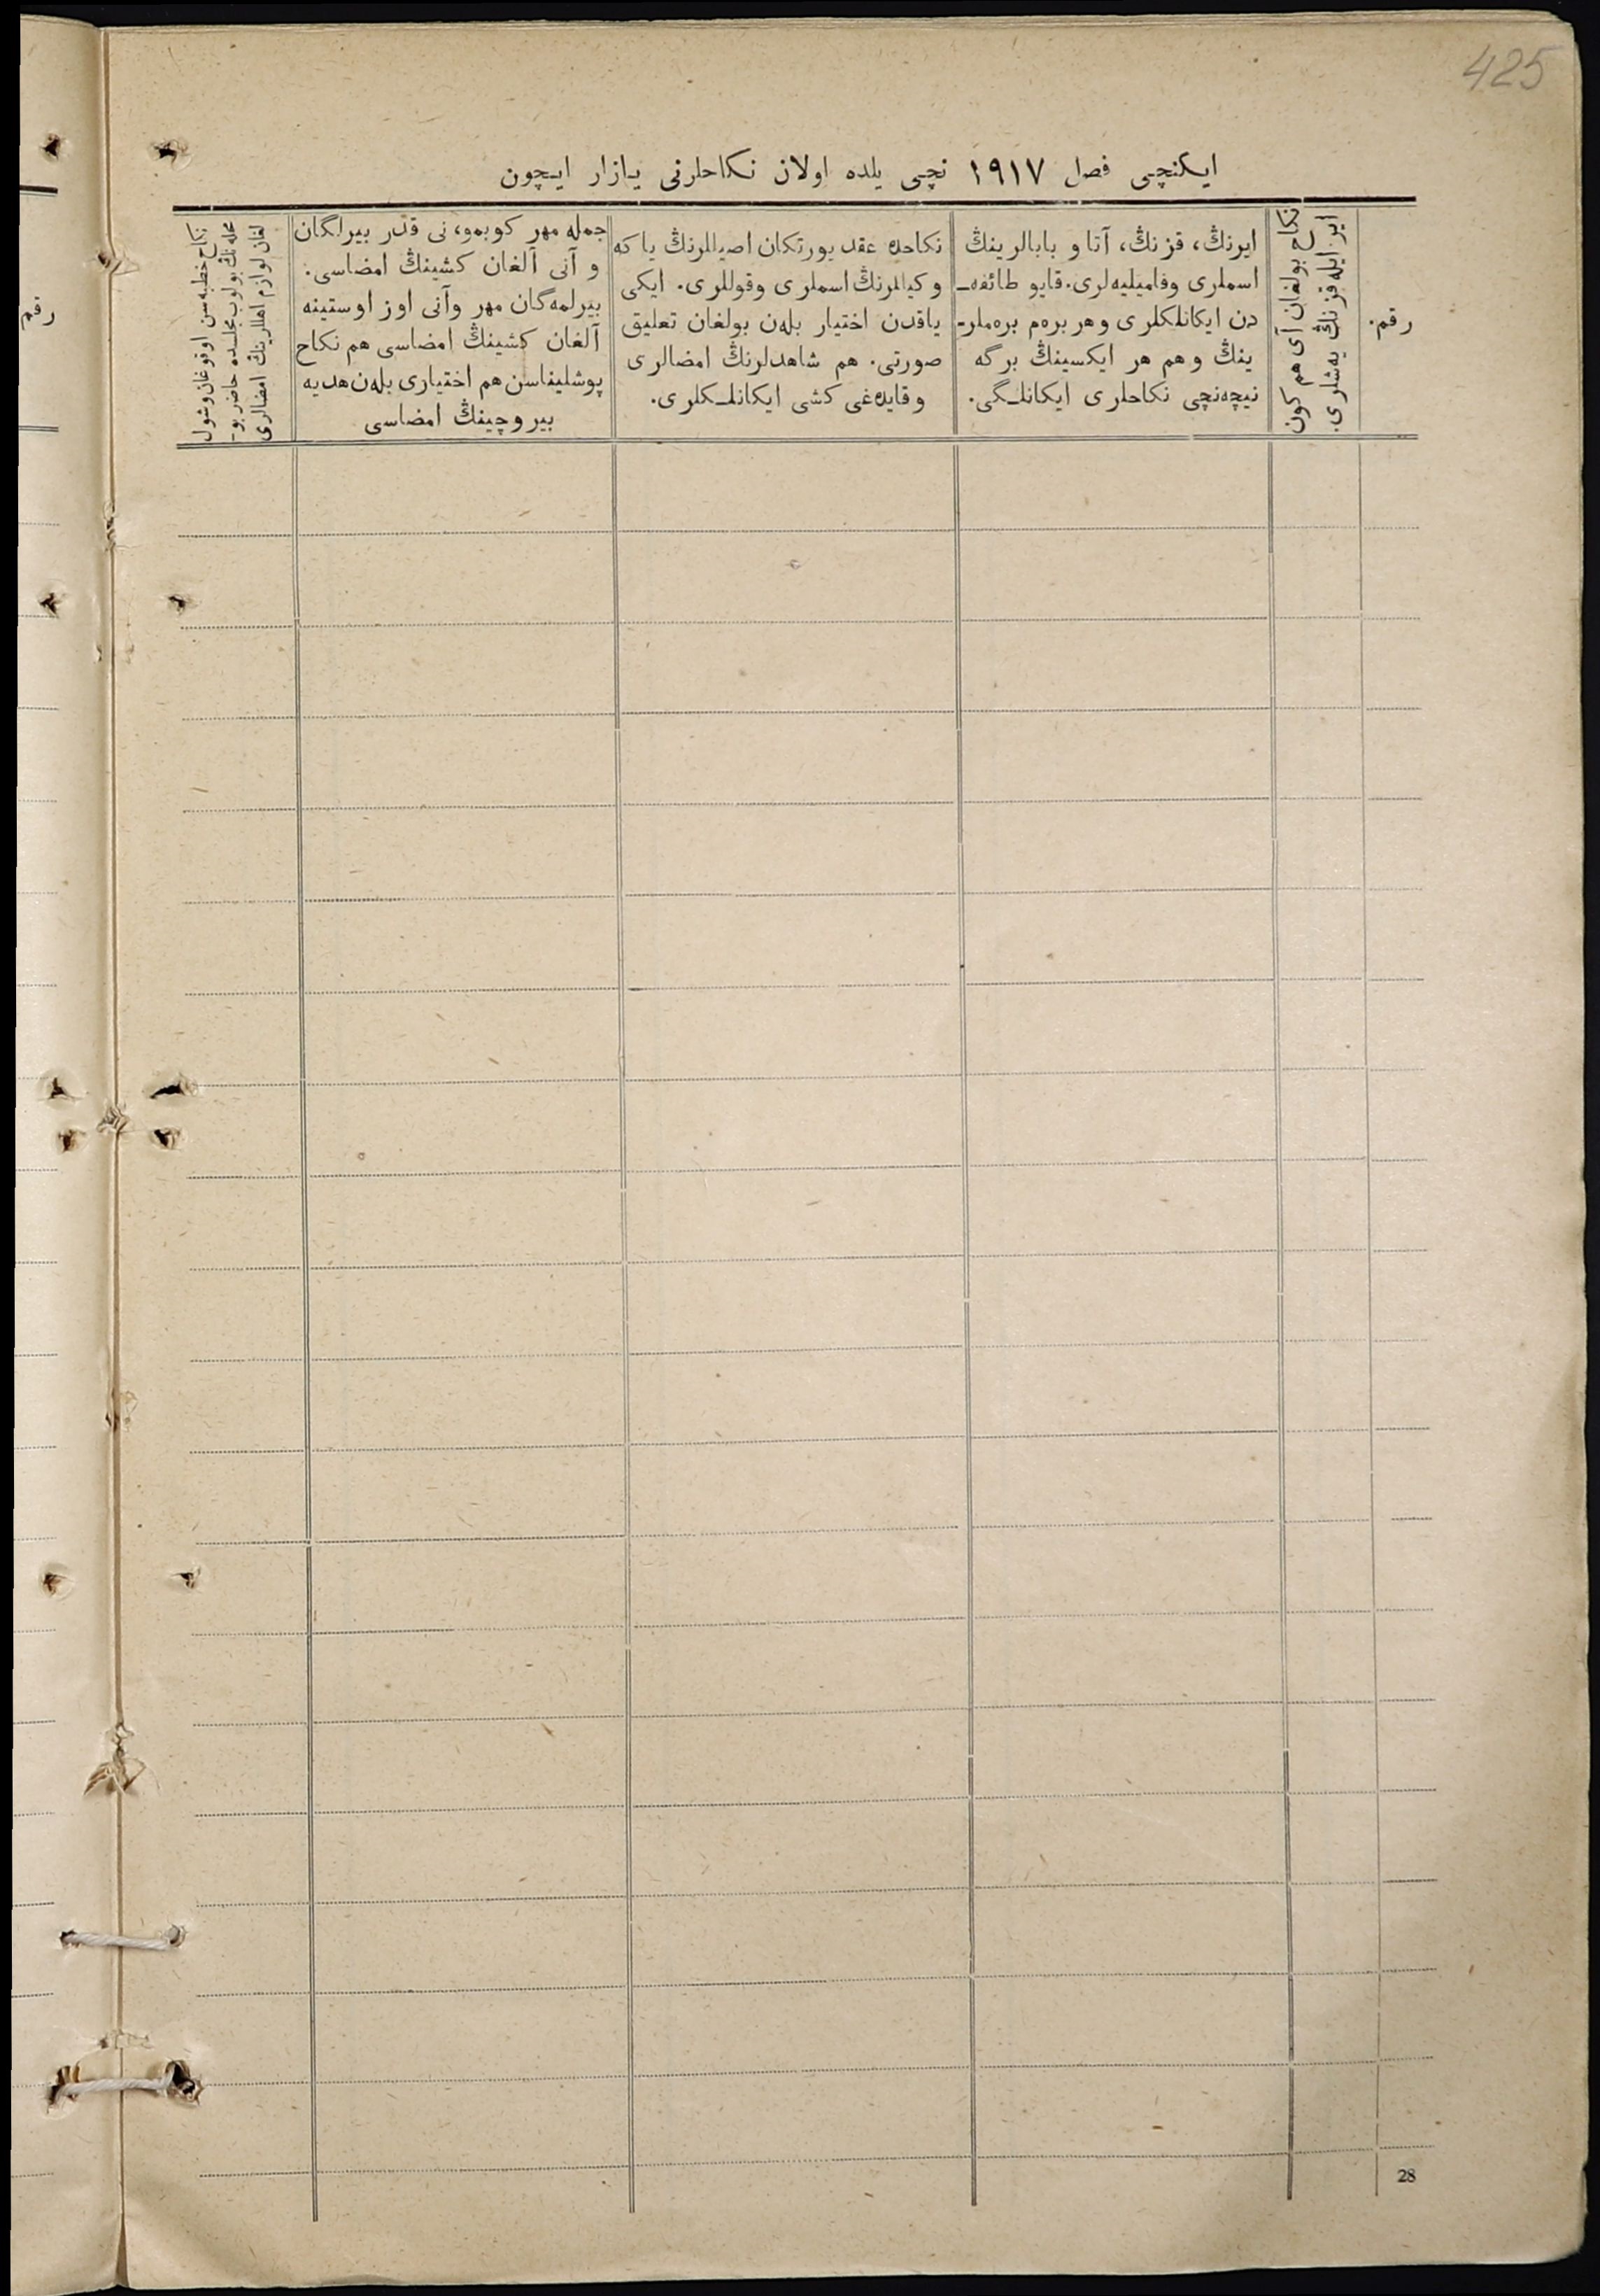 425
ایکنچی فصل ١٩١٧ نچی یلده اولان نکاحلرنی یازار ایچون
رقم.
ایر ایله قزنڭ یه‌شلری.
نکاح بولغان آی هم کون
ایرنڭ، قزنڭ، آتا و بابالرینڭ
اسملری وفامیلیه‌لری. قایو طائفه‌ـ
دن ایکانلکلری و هر بره‌م بره‌ملرـ
ینڭ و هم هر ایکسینڭ برگه
نیچه‌نچی نکاحلری ایکانلـگی.
نکاحده عقد یورتکان اصیللرنڭ یا که
و کیللرنڭ اسملری وقوللری. ایکی
یاقدن اختیار بله‌ن بولغان تعلیق
صورتی. هم شاهدلرنڭ امضالری
و قایده‌غی کشی ایکانلـکلری.
جمله مهر کوبمو، نی قدر بیرلگان
و آنی آلغان کشینڭ امضاسی.
بیرلمه‌گان مهر وآنی اوز اوستینه
آلغان کشینڭ امضاسی هم نکاح
پوشلیناسن هم اختیاری بله‌ن هدیه
بیروچینڭ امضاسی
نکاح خطبه‌سن اوقوغان وشول
محله‌نڭ بولوب مجلسده حاضر بوـ
لغان لوازم اهللرینڭ امضالری
رقم
28